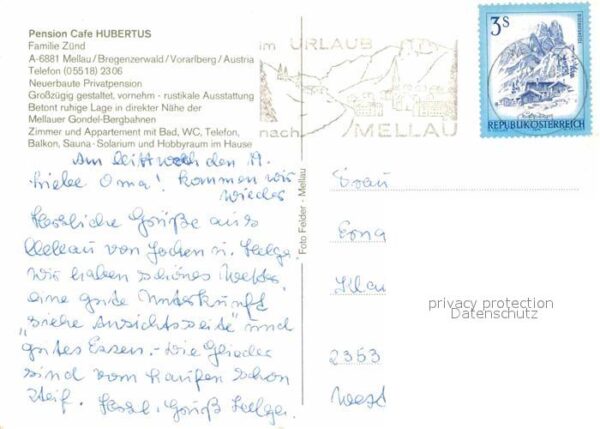 Pension Cafe HUBERTUS
Familie Zünd
A-6881 Mellau/Bregenzerwald/Vorarlberg/Austria
Telefon (05518) 2306
Neuerbaute Privatpension
Großzügig gestaltet, vornehm - rustikale Ausstattung
Betont ruhige Lage in direkter Nähe der
Mellauer Gondel-Bergbahnen
Zimmer und Appartement mit Bad, WC, Telefon,
Balkon, Sauna - Solarium und Hobbyraum im Hause
im URLAUB
nach MELLAU
3 S
REPUBLIK ÖSTERREICH
Am Mittwoch den 19.
Oma! kommen wir
wieder
Herzliche Grüße aus
Mellau von Jochen u. Helga.
Wir haben schönes Wetter,
eine gute Unterkunft
"siehe Ansichtsseite" und
gutes Essen. - Die Glieder
sind vom Laufen schon
steif. Herzl. Gruß Helga.
Foto Felder - Mellau
Frau
Erna
2353
West
privacy protection
Datenschutz